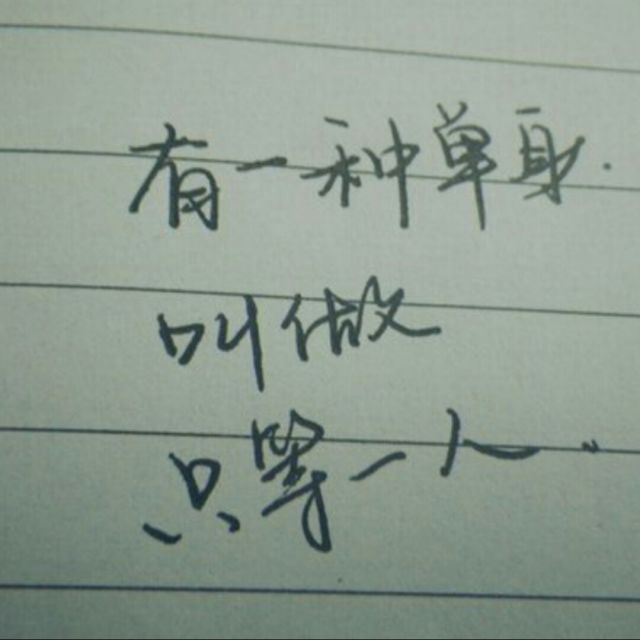 有一种单身.
叫做
只等一人..